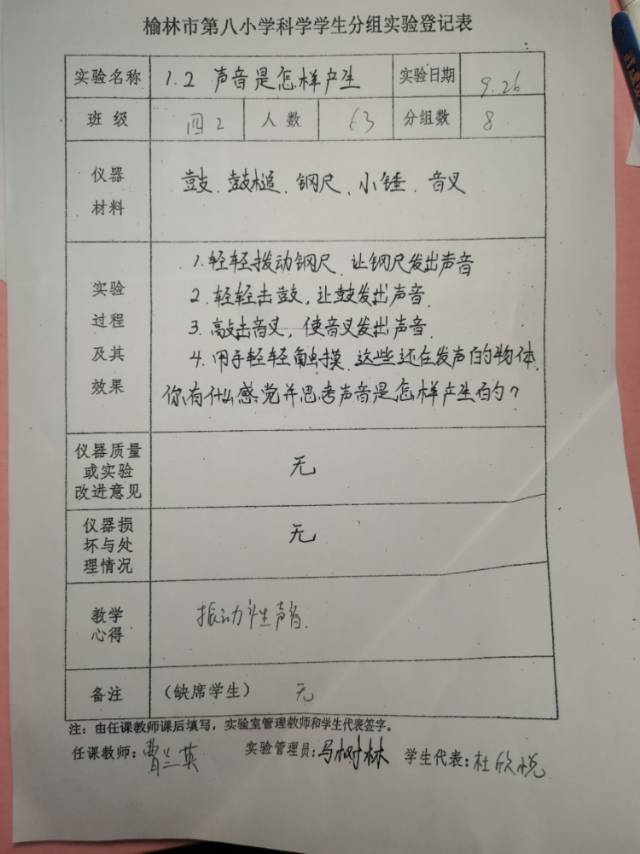 榆林市第八小学科学学生分组实验登记表
实验名称 1.2 声音是怎样产生 实验日期 9.26
班级 四2 人数 63 分组数 8
仪器材料 鼓、鼓槌、钢尺、小锤、音叉
实验过程及其效果
1.轻轻拨动钢尺、让钢尺发出声音
2.轻轻击鼓,让鼓发出声音.
3.敲击音叉,使音叉发出声音.
4.用手轻轻触摸 这些还在发声的物体
你有什么感觉并思考声音是怎样产生的?
仪器质量或实验改进意见 无
仪器损坏与处理情况 无
教学心得 振动产生声音.
备注 (缺席学生) 无
注:由任课教师课后填写,实验室管理教师和学生代表签字。
任课教师:曹兰英 实验管理员:马树林 学生代表:杜欣悦